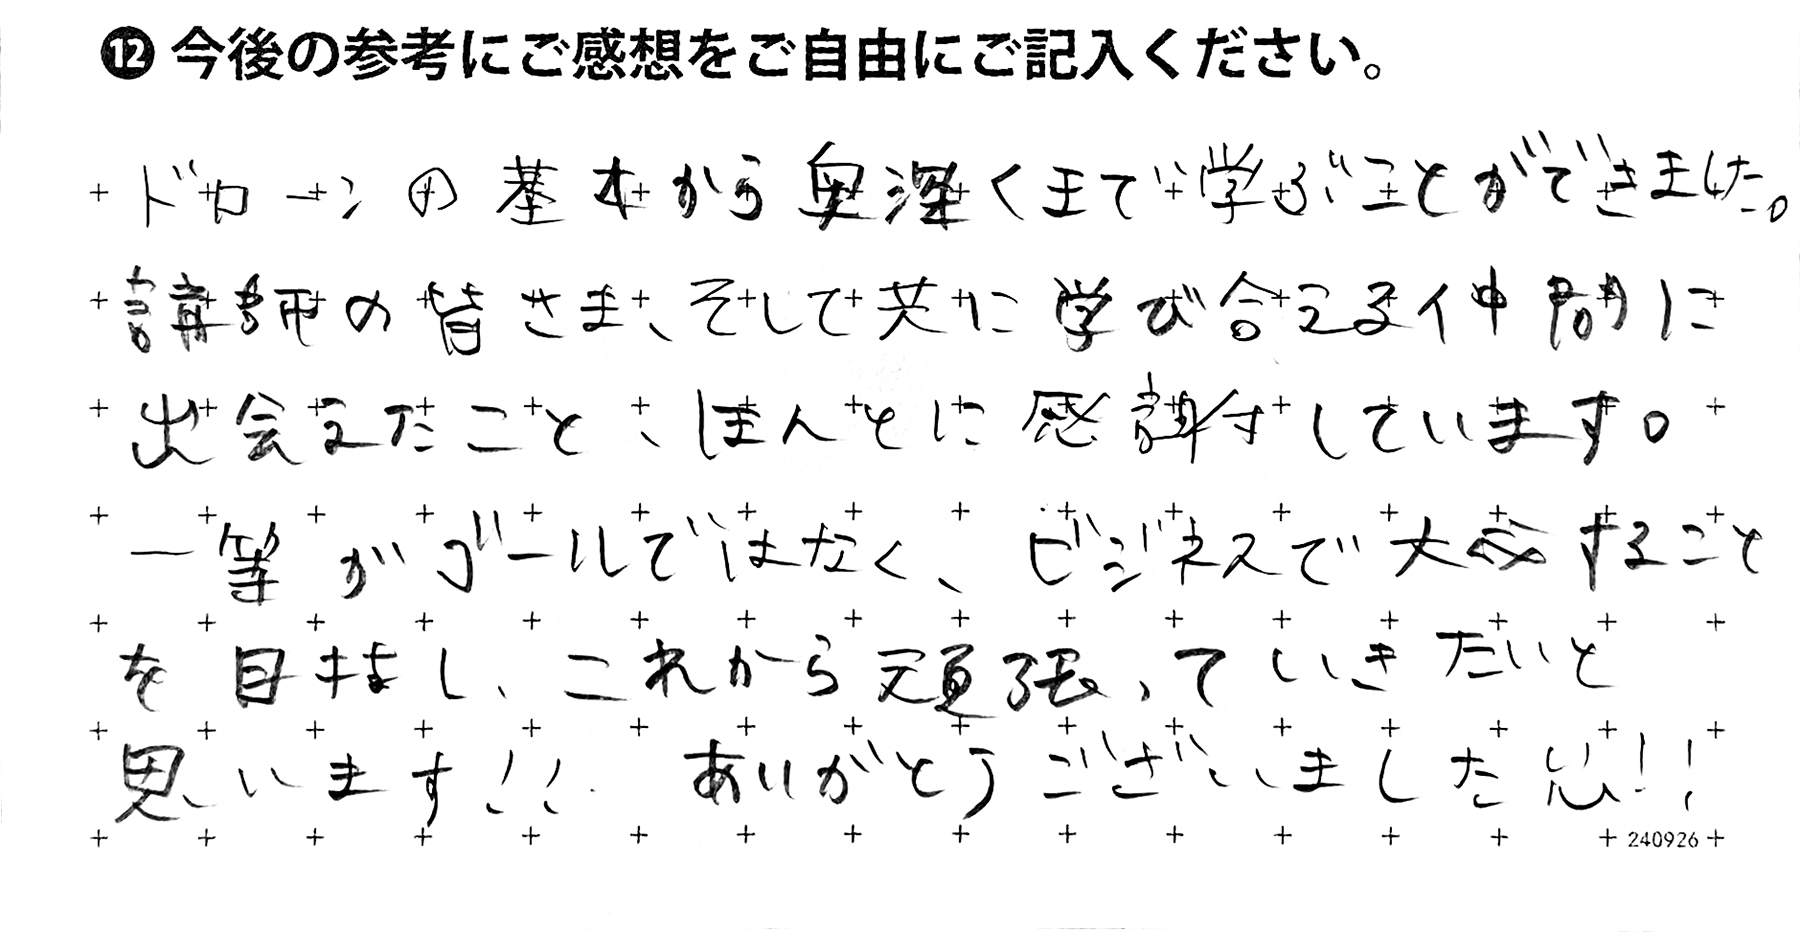 ⓬ 今後の参考にご感想をご自由にご記入ください。
ドローンの基本から奥深くまで学ぶことができました。
講師の皆さま、そして共に学び合える仲間に
出会えたこと、ほんとに感謝しています。
一等がゴールではなく、ビジネスで大成すること
を目指し、これから頑張っていきたいと
思います!! ありがとうございました!!
240926